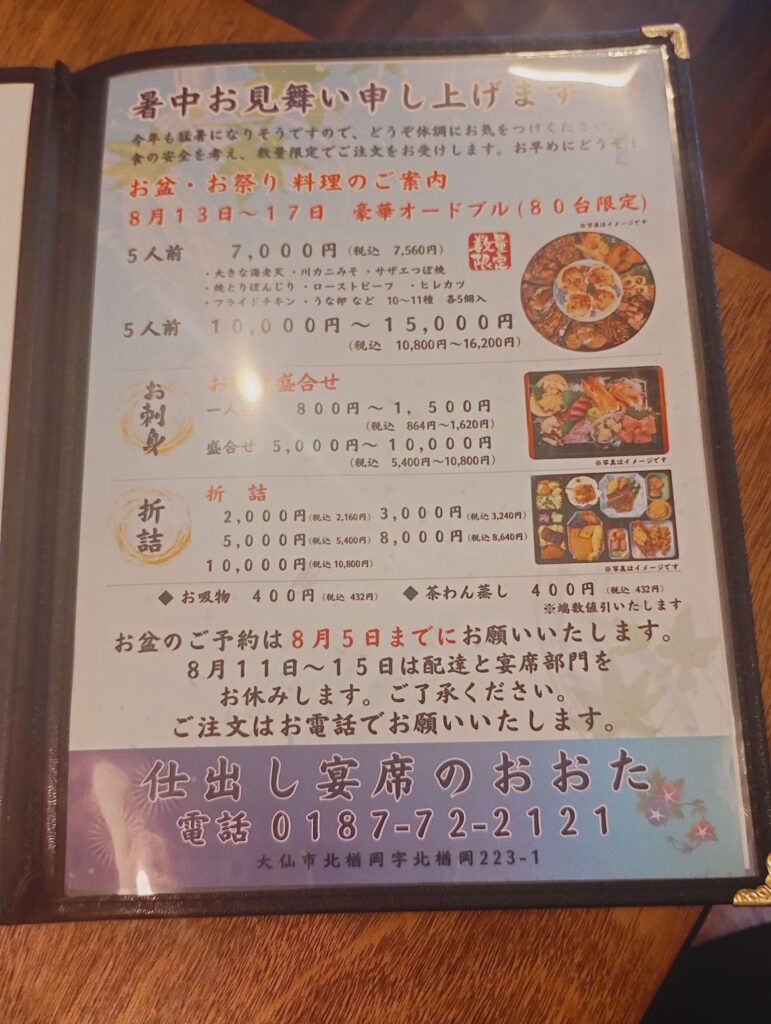 暑中お見舞い申し上げます
今年も猛暑になりそうですので、どうぞ体調にお気をつけください。
食の安全を考え、数量限定でご注文をお受けします。お早めにどうぞ！
お盆・お祭り 料理のご案内
8月13日～17日 豪華オードブル(80台限定)
※写真はイメージです
5人前 7,000円(税込 7,560円) 数量限定
・大きな海老天・川カニみそ・サザエつぼ焼
・焼とりぼんじり・ローストビーフ ・ヒレカツ
・フライドチキン・うな卵 など 10～11種 各5個入
5人前 10,000円～15,000円
(税込 10,800円～16,200円)
お刺身
お 盛合せ
一人 800円～1,500円
(税込 864円～1,620円)
盛合せ 5,000円～10,000円
(税込 5,400円～10,800円)
※写真はイメージです
折詰
折 詰
2,000円(税込 2,160円) 3,000円(税込 3,240円)
5,000円(税込 5,400円) 8,000円(税込 8,640円)
10,000円(税込 10,800円)
※写真はイメージです
◆ お吸物 400円(税込 432円) ◆ 茶わん蒸し 400円(税込 432円)
※端数値引いたします
お盆のご予約は8月5日までにお願いいたします。
8月11日～15日は配達と宴席部門を
お休みします。ご了承ください。
ご注文はお電話でお願いいたします。
仕出し宴席のおおた
電話 0187-72-2121
大仙市北楢岡字北楢岡223-1